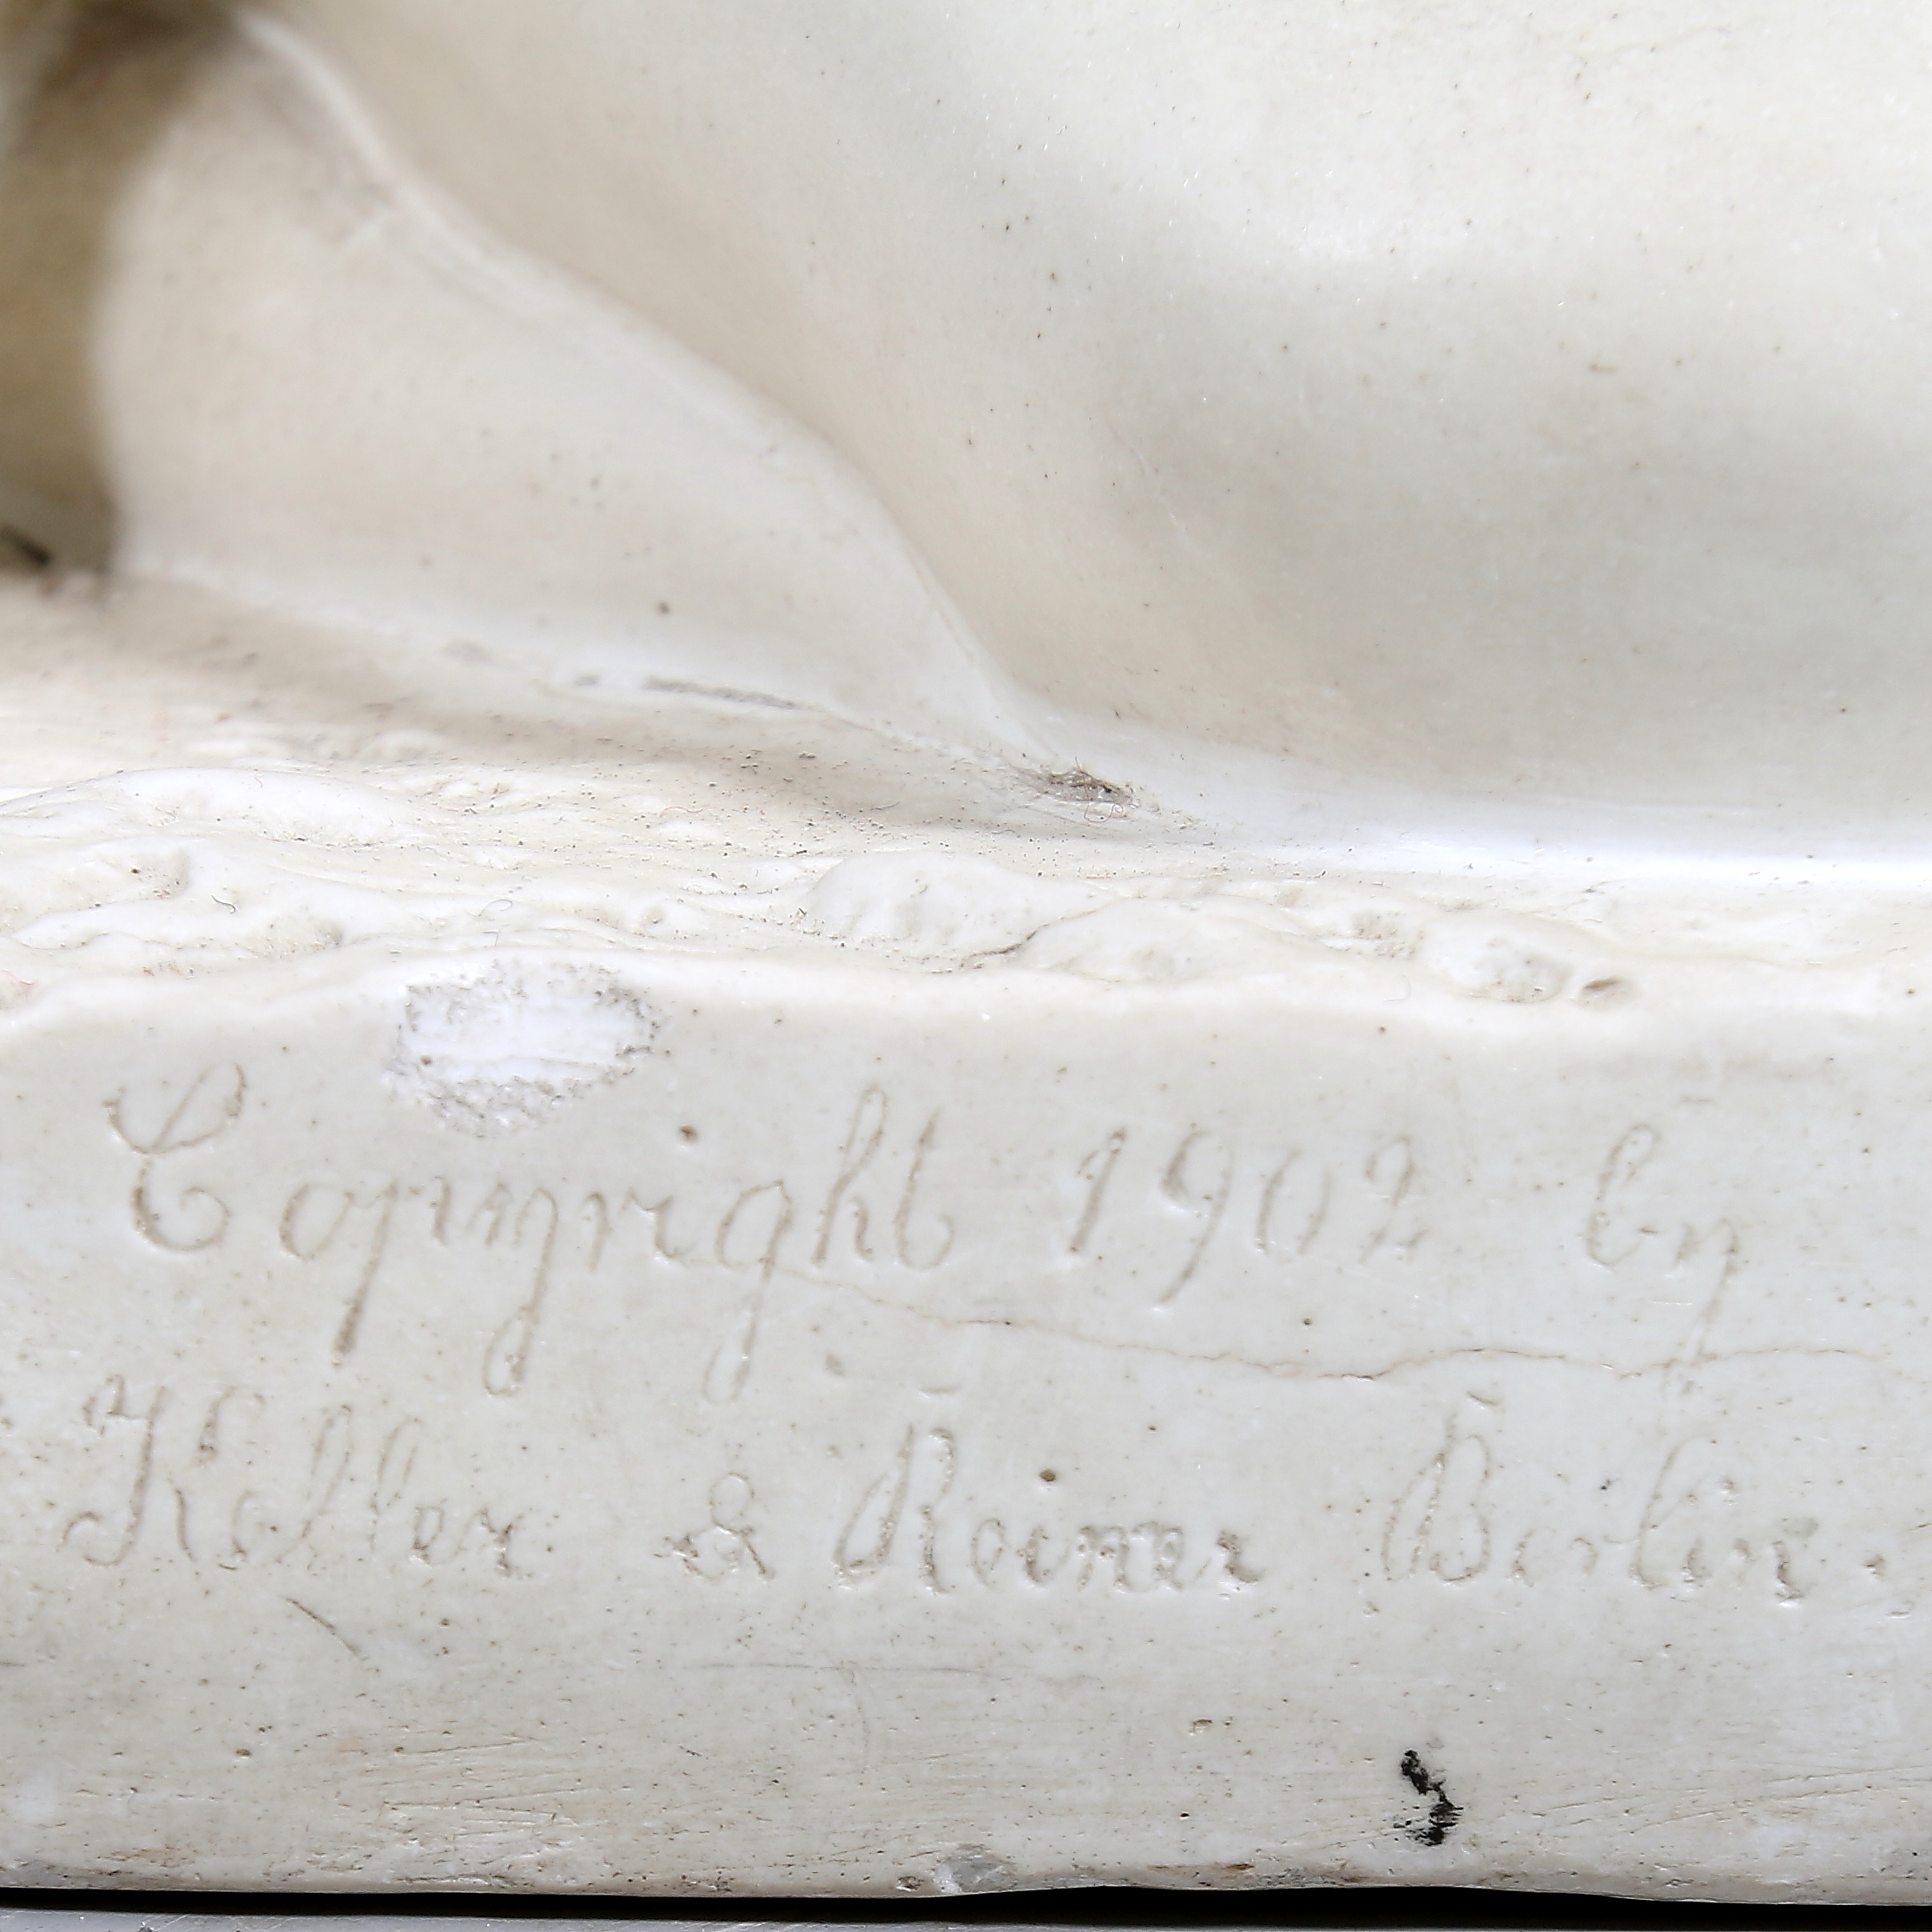 Copyright 1902 by
Keller & Reiner Berlin.